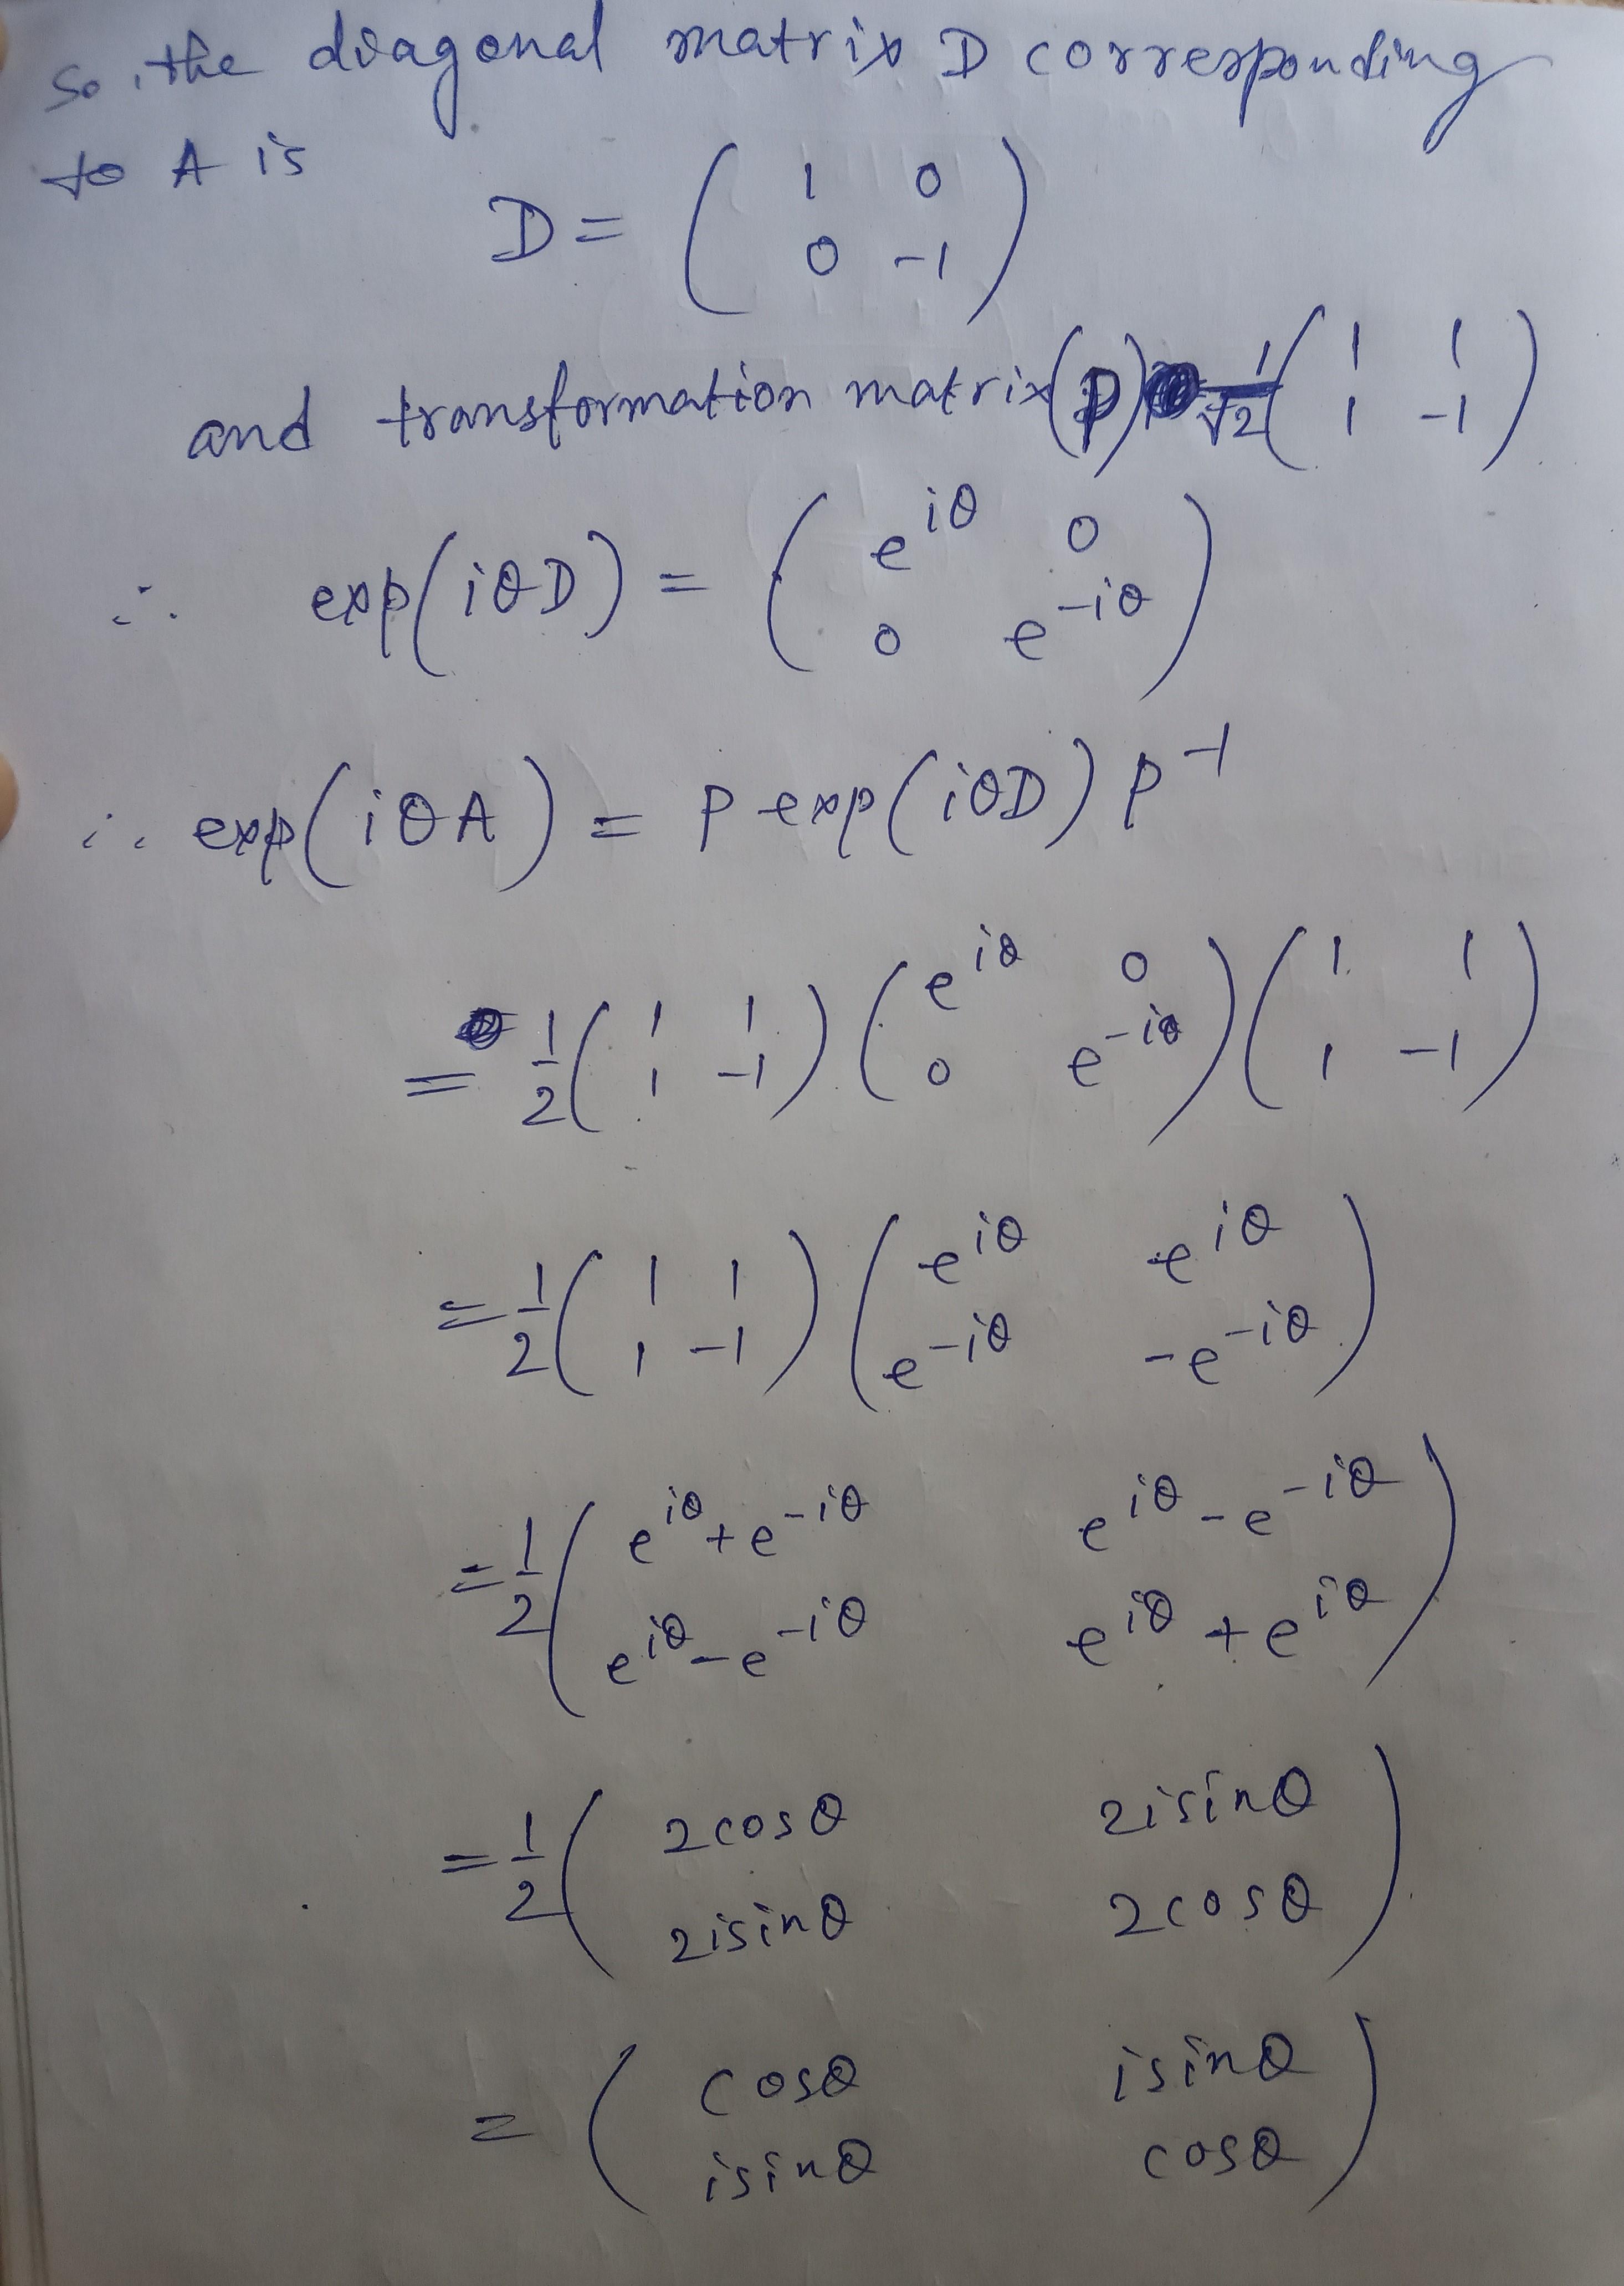 So, the diagonal matrix D corresponding
to A is
D = ( 1 0
0 -1 )
and transformation matrix (P) 1/√2 ( 1 1
1 -1 )
∴ exp(iθD) = ( e^{iθ} 0
0 e^{-iθ} )
∴ exp(iθA) = P exp(iθD) P^{-1}
= 1/2 ( 1 1
1 -1 ) ( e^{iθ} 0
0 e^{-iθ} ) ( 1 1
1 -1 )
= 1/2 ( 1 1
1 -1 ) ( e^{iθ} e^{iθ}
e^{-iθ} -e^{-iθ} )
= 1/2 ( e^{iθ} + e^{-iθ} e^{iθ} - e^{-iθ}
e^{iθ} - e^{-iθ} e^{iθ} + e^{iθ} )
= 1/2 ( 2cosθ 2isinθ
2isinθ 2cosθ )
= ( cosθ isinθ
isinθ cosθ )